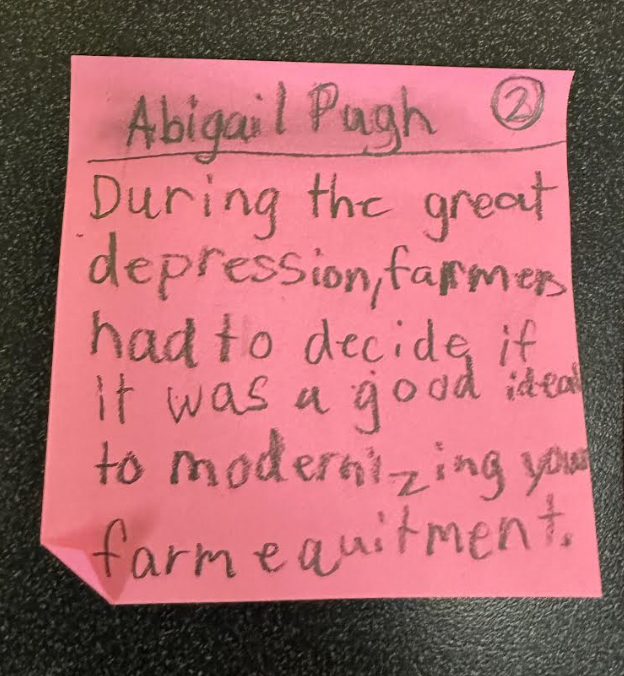 Abigail Pugh ②
During the great
depression, farmers
had to decide if
it was a good ideal
to modernizing your
farm equitment.